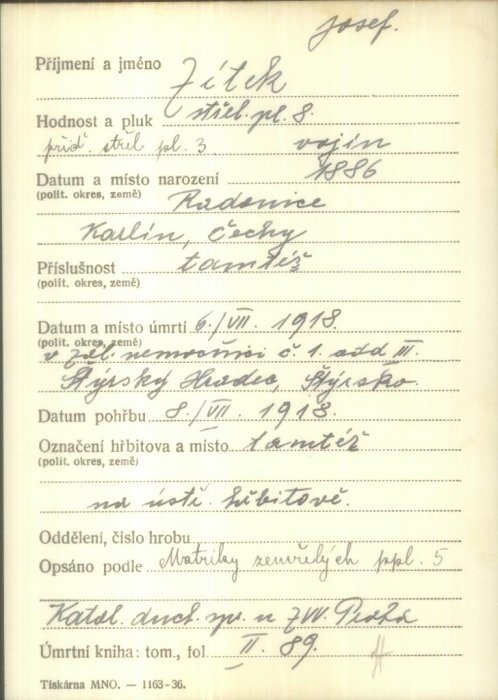 Josef.
Příjmení a jméno Žítek
Hodnost a pluk střel. pl. 8.
příď. střel pl. 3 vojín
Datum a místo narození 1886
(polit. okres, země) Radonice
Karlín, Čechy
Příslušnost tamtéž
(polit. okres, země)
Datum a místo úmrtí 6./VII. 1918.
(polit. okres, země)
v zál. nemocnici č. 1. odd III.
Štýrský Hradec, Štýrsko.
Datum pohřbu 8./VII. 1918.
Označení hřbitova a místo tamtéž
(polit. okres, země)
na ústř. hřbitově.
Oddělení, číslo hrobu
Opsáno podle Matriky zemřelých ppl. 5
Katol. duch. spr. u ZVV. Praha
Úmrtní kniha: tom., fol II. 89.
Tiskárna MNO. — 1163-36.